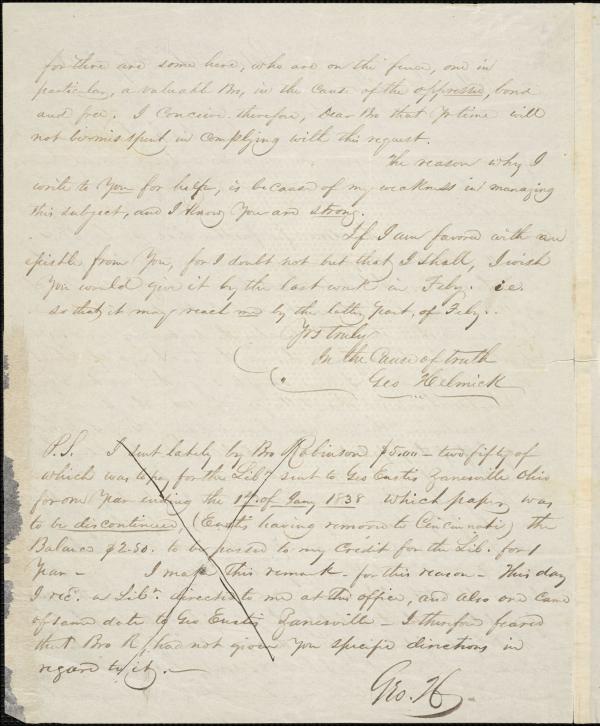 for there are some here, who are on the fence, one in
particular, a valuable Bro, in the cause of the oppressed, bond
and free. I conceive therefore, Dear Bro that Yr time will
not be misspent in complying with this request.
The reason why I
write to You for help, is because of my weakness in managing
this subject, and I know You are strong.
If I am favored with an
epistle from You, for I doubt not but that I shall, I wish
You would give it by the last week in Feby. i.e.
so that it may reach me by the latter part, of Feby..
Yrs truly
In the Cause of truth
Geo Helmick
P.S. I sent lately by Bro Robinson $5.00 - two fifty of
which was to pay for the Libr. sent to Geo Eustis Zanesville Ohio
for one Year ending the 1st of Jany 1838 which paper was
to be discontinued (Eustis having removed to Cincinnati) the
Balance $2.50. to be passed to my Credit for the Lib. for 1
Year - I make this remark - for this reason - This day
I rec. a Libr. directed to me at this office, and also one came
of same date to Geo Eustis Zanesville - I therefore feared
that Bro R. had not given You specific directions in
regard to it. -
Geo. H